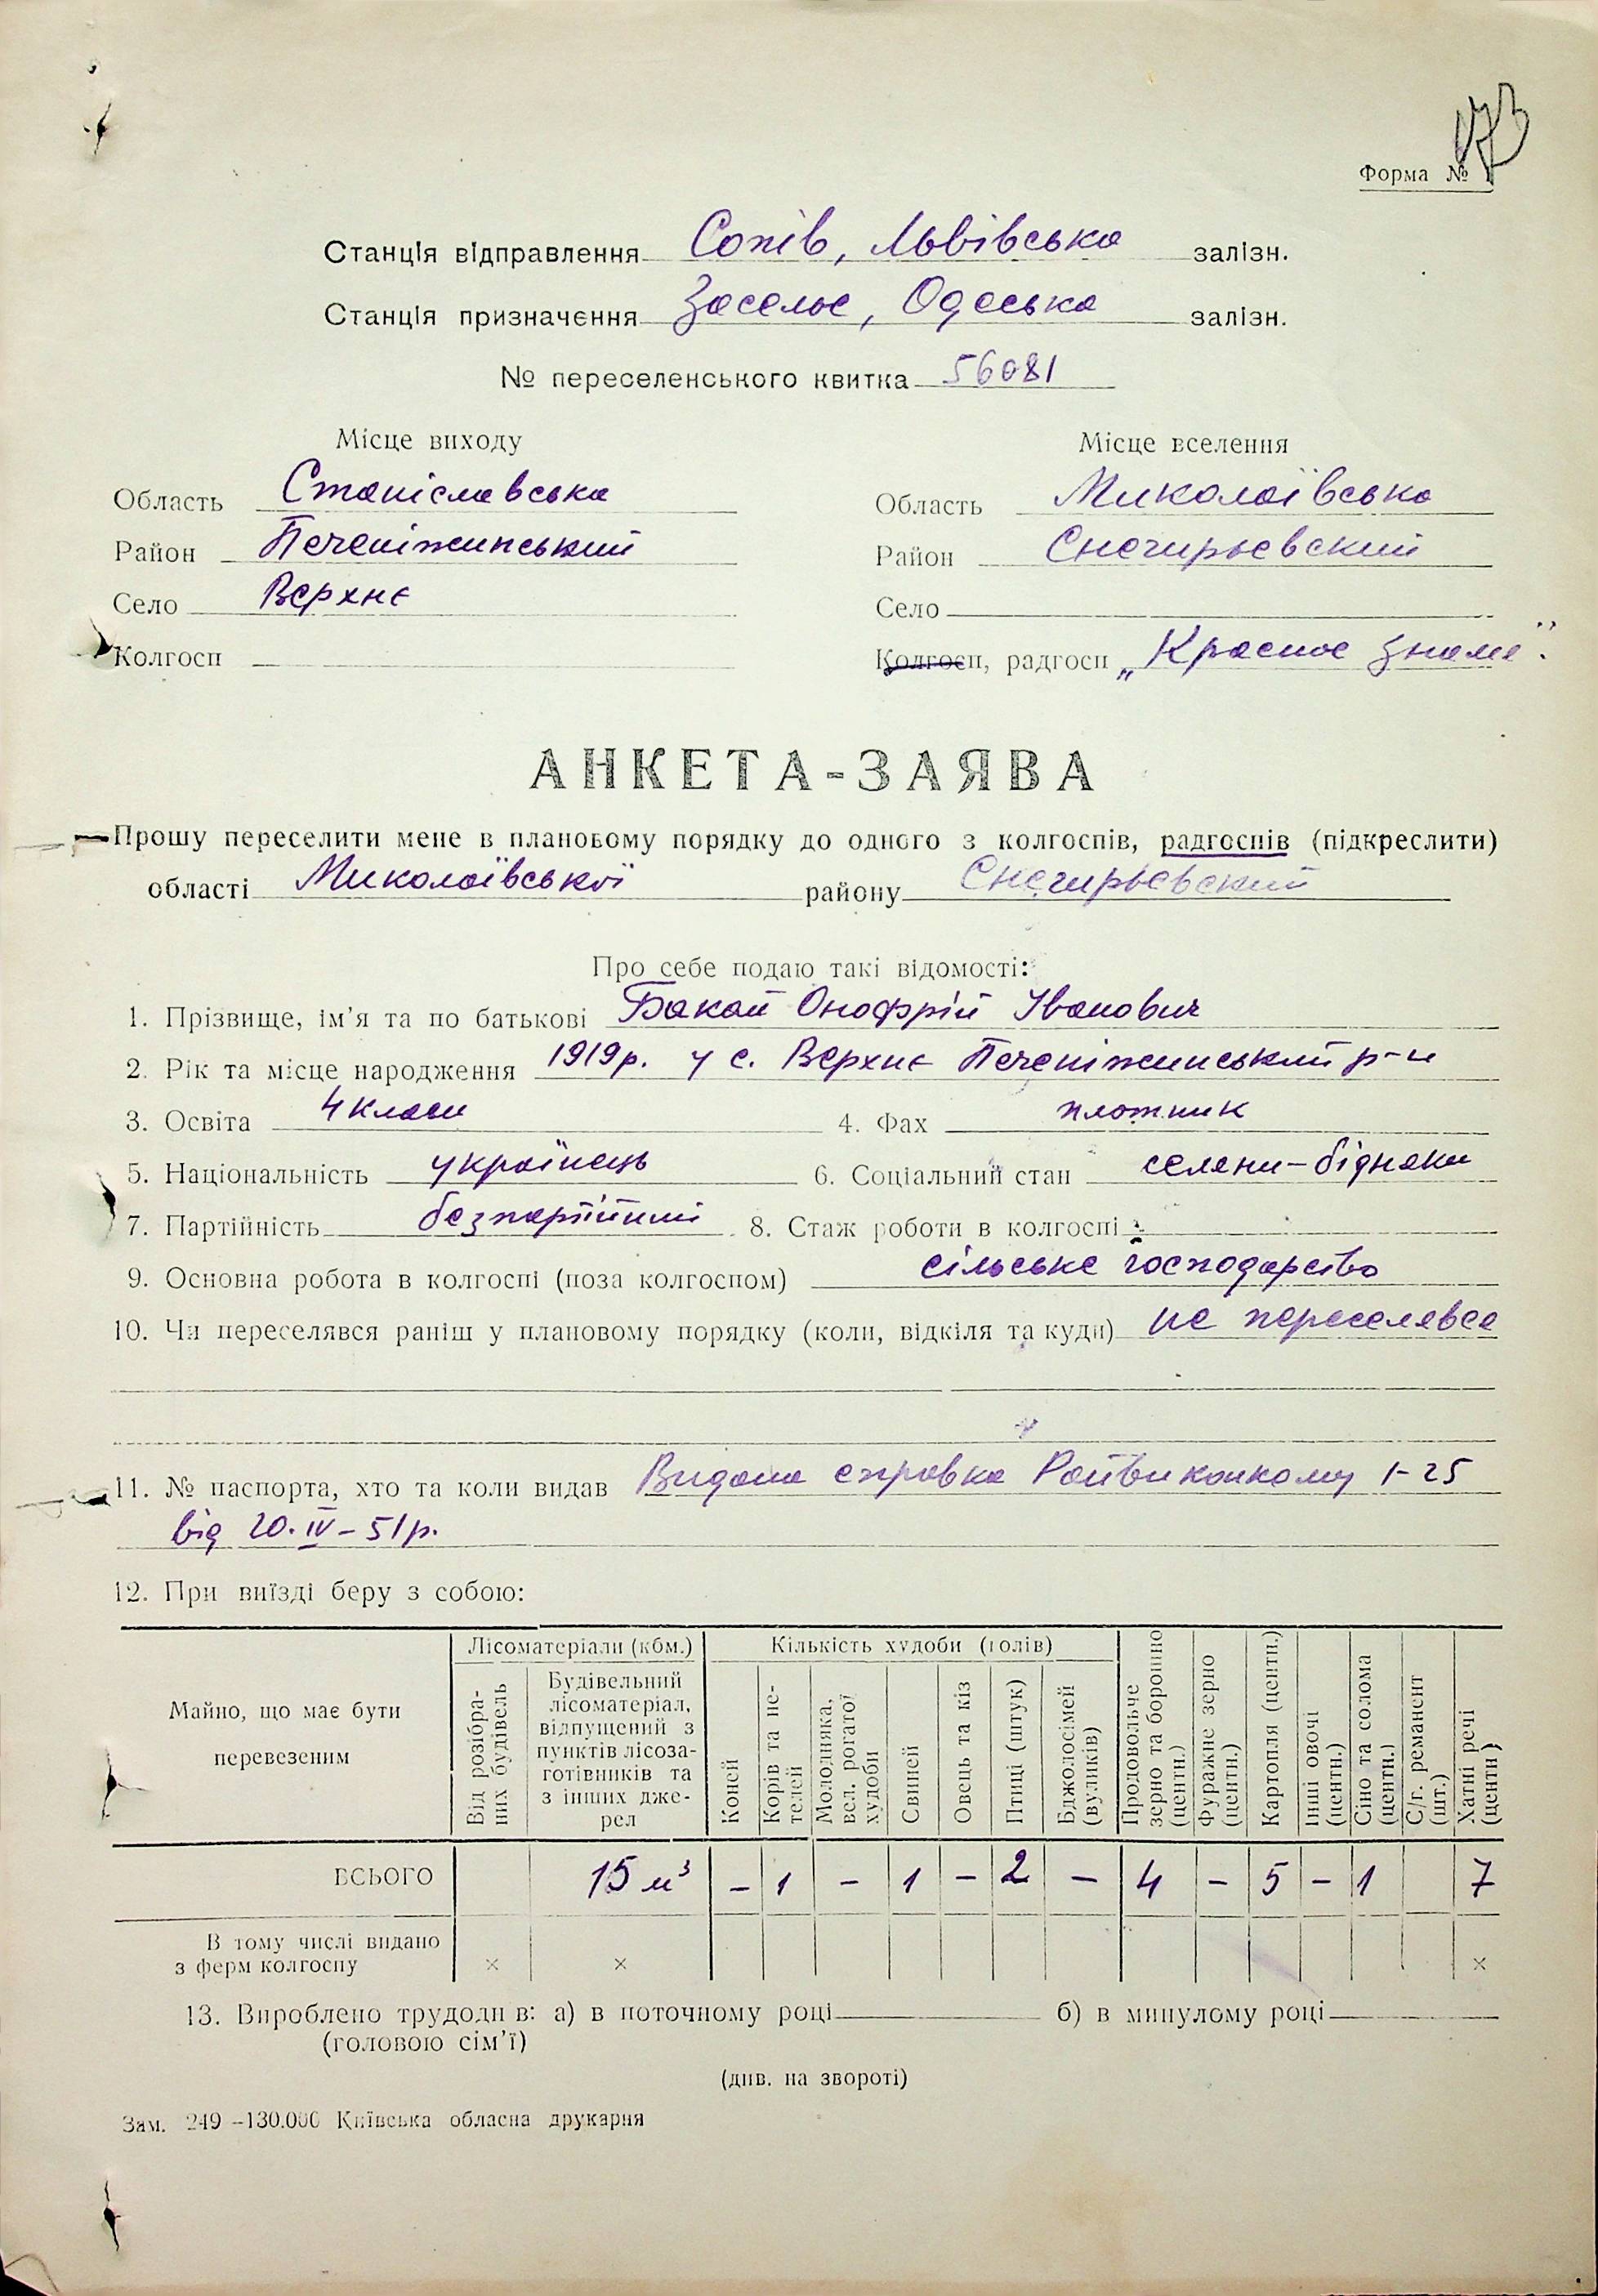 173
Форма № 1
Станція відправлення Сопів, Львівська залізн.
Станція призначення Заселье, Одеська залізн.
№ переселенського квитка 56081
Місце виходу
Місце вселення
Область Станіславська
Область Миколаївська
Район Печеніжинський
Район Снегирьевский
Село Верхнє
Село
Колгосп
Колгосп, радгосп „Красное знамя".
АНКЕТА-ЗАЯВА
Прошу переселити мене в плановому порядку до одного з колгоспів, радгоспів (підкреслити)
області Миколаївської району Снегирьевский
Про себе подаю такі відомості:
1. Прізвище, ім'я та по батькові Бакай Онофрій Іванович
2. Рік та місце народження 1919р. у с. Верхнє Печеніжинський р-н
3. Освіта 4 класи 4. Фах плотник
5. Національність українець 6. Соціальний стан селяни-бідняки
7. Партійність безпартійний 8. Стаж роботи в колгоспі
9. Основна робота в колгоспі (поза колгоспом) сільське господарство
10. Чи переселявся раніш у плановому порядку (коли, відкіля та куди) не переселявся
11. № паспорта, хто та коли видав Видана справка Райвиконкому 1-25
від 20.IV-51р.
12. При виїзді беру з собою:
Майно, що має бути перевезеним
Лісоматеріали (кбм.)
Від розібраних будівель
Будівельний лісоматеріал, відпущений з пунктів лісозаготівників та з інших джерел
Кількість худоби (голів)
Коней
Корів та нетелей
Молодняка, вел. рогатої худоби
Свиней
Овець та кіз
Птиці (штук)
Бджолосімей (вуликів)
Продовольче зерно та борошно (центн.)
Фуражне зерно (центн.)
Картопля (центн.)
Інші овочі (центн.)
Сіно та солома (центн.)
С/г. реманент (шт.)
Хатні речі (центн)
ВСЬОГО 15 м³ – 1 – 1 – 2 – 4 – 5 – 1 7
В тому числі видано
з ферм колгоспу × × ×
13. Вироблено трудоднів: а) в поточному році б) в минулому році
(головою сім'ї)
(див. на звороті)
Зам. 249 –130.000 Київська обласна друкарня